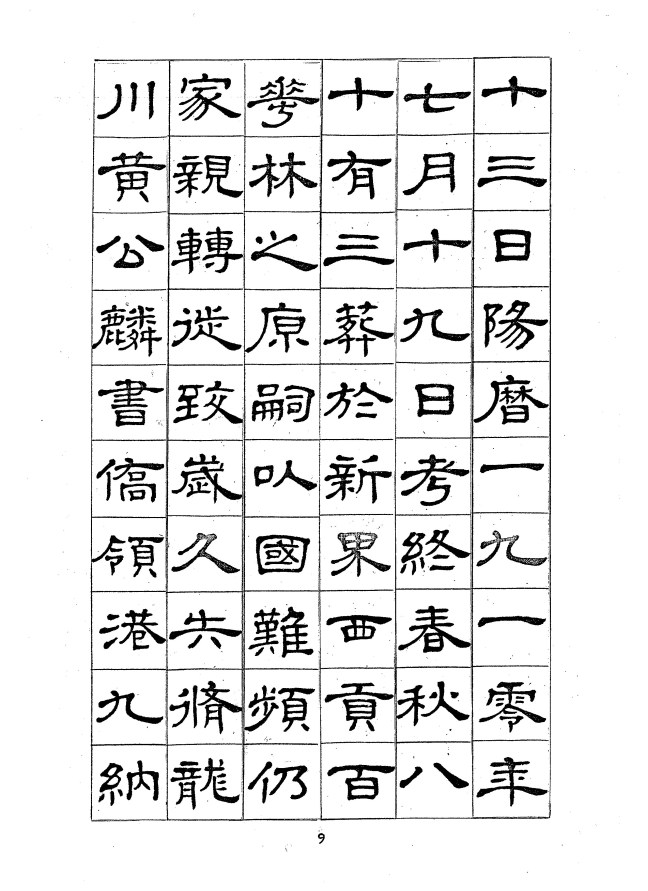 十三日陽曆一九一零年
七月十九日考終春秋八
十有三葬於新界西貢百
花林之原嗣以國難頻仍
家親轉徙致歲久失脩龍
川黃公麟書僑領港九納
9